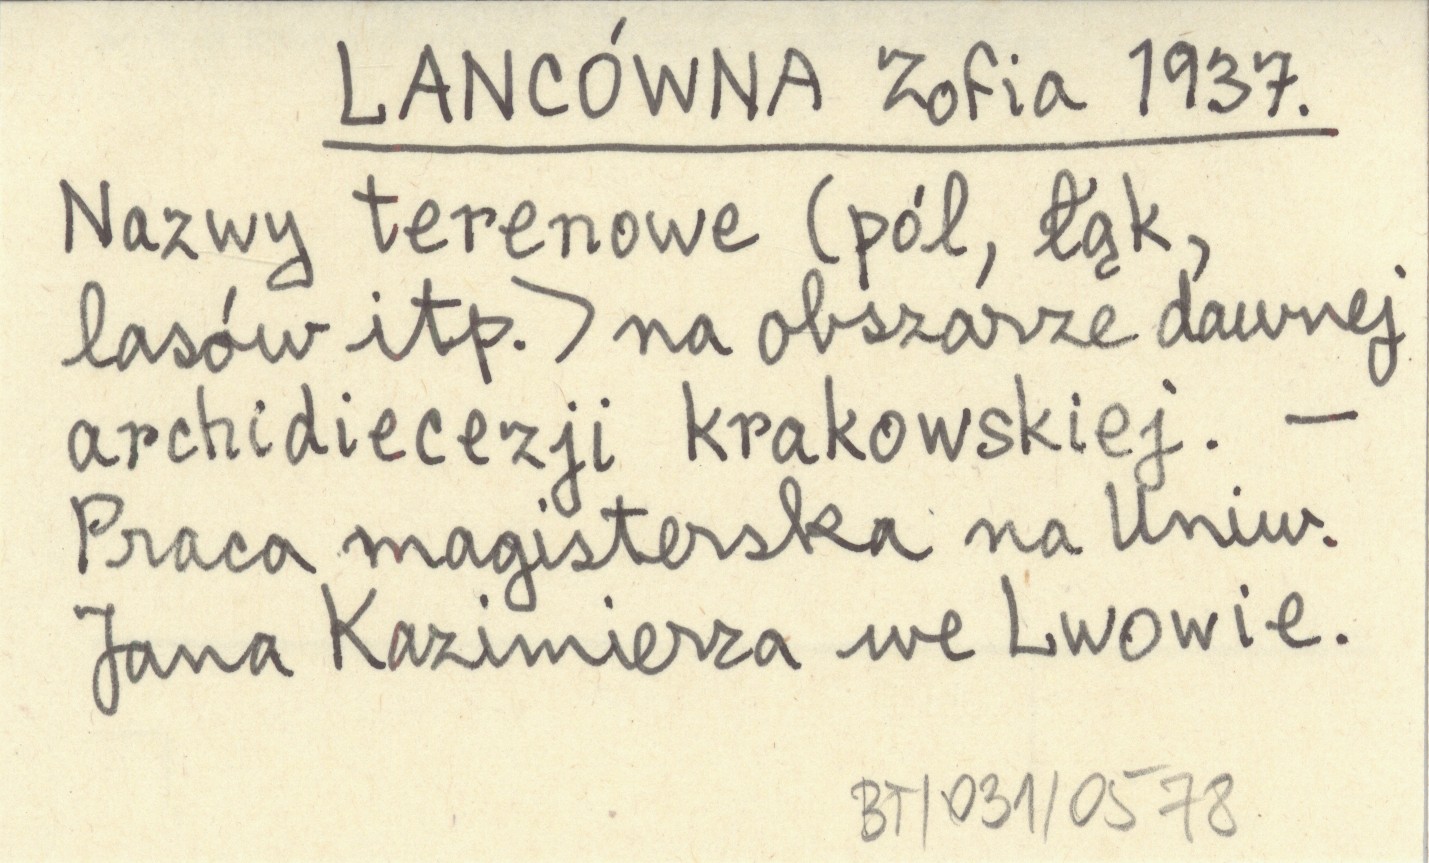 LANCÓWNA Zofia 1937.
Nazwy terenowe (pól, łąk,
lasów itp.) na obszarze dawnej
archidiecezji krakowskiej. —
Praca magisterska na Uniw.
Jana Kazimierza we Lwowie.
BT/031/0578